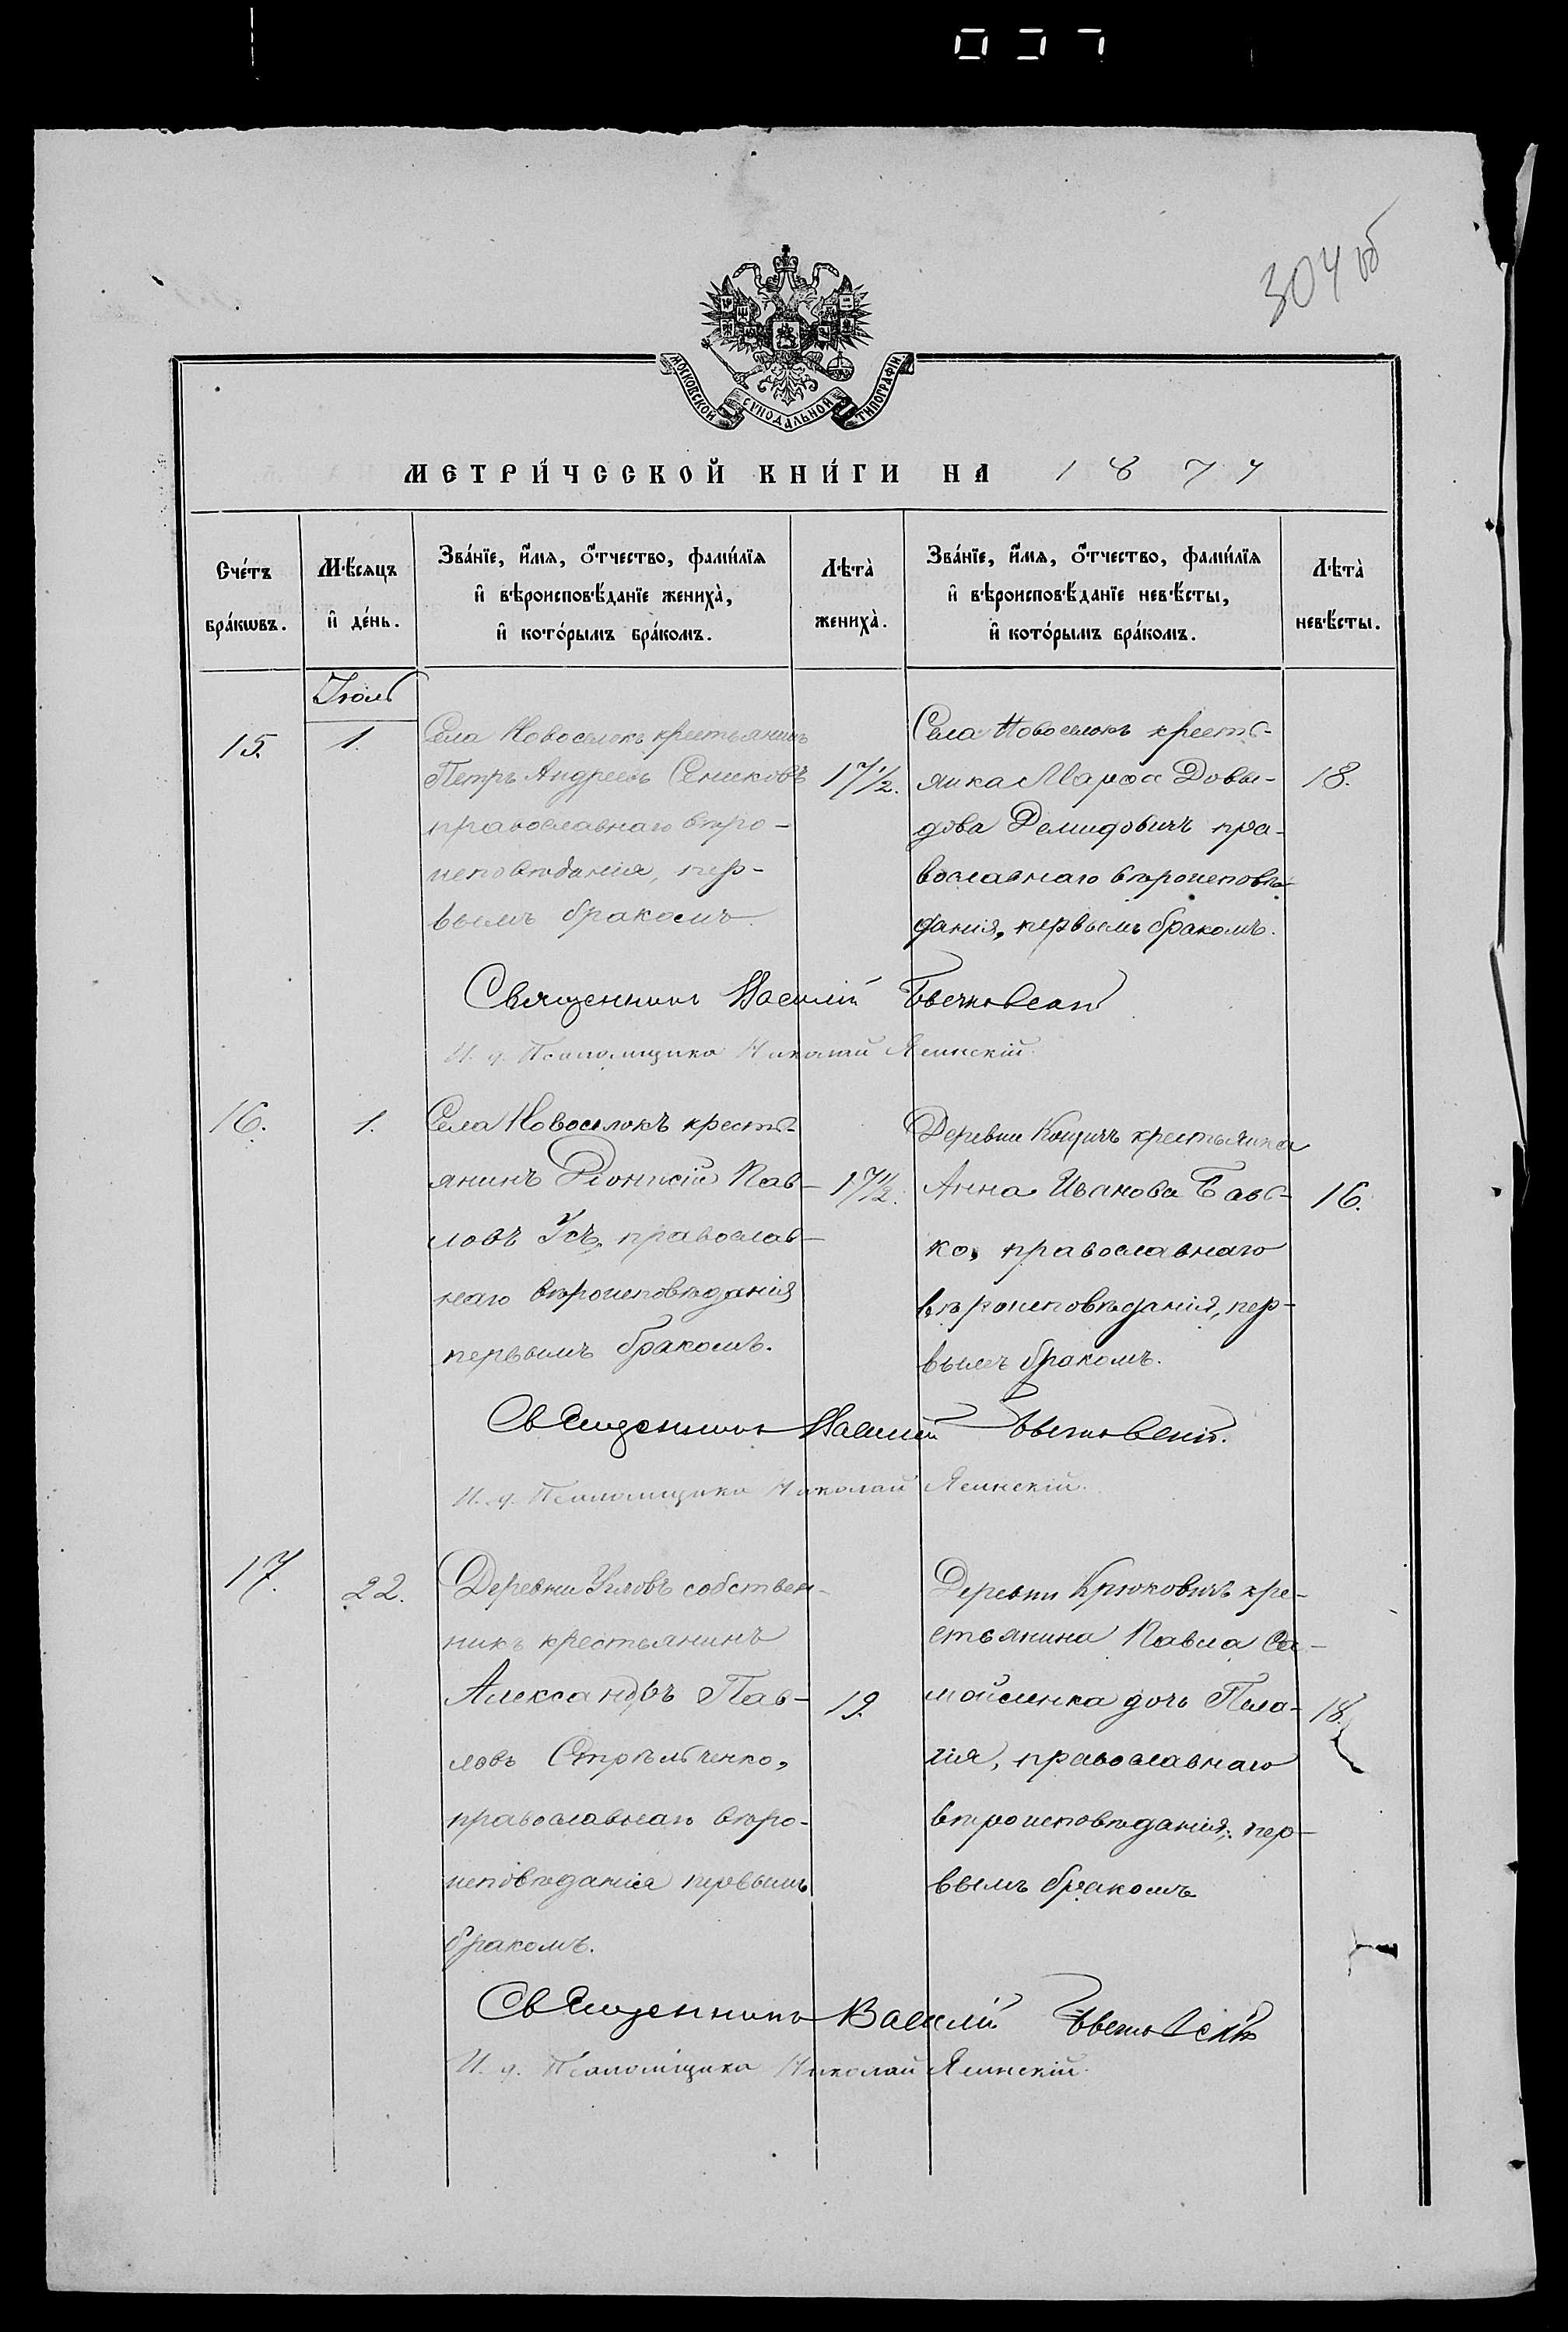 304 об
МОСКОВСКОЙ СѴНОДАЛЬНОЙ ТИПОГРАФІИ
МЕТРИ́ЧЕСКОЙ КНИ́ГИ НА 1877
Сче́тъ бра́кѡвъ.
Мѣ́сѧцъ и҆ де́нь.
Зва́нїе, и҆́мѧ, ѻ҆́тчество, фами́лїѧ
и҆ вѣроисповѣ́данїе жениха̀,
и҆ кото́рымъ бра́комъ.
Лѣта̀ жениха̀.
Зва́нїе, и҆́мѧ, ѻ҆́тчество, фами́лїѧ
и҆ вѣроисповѣ́данїе невѣ́сты,
и҆ кото́рымъ бра́комъ.
Лѣта̀ невѣ́сты.
Іюль
15.
1.
Села Новоселокъ крестьянинъ
Петръ Андреевъ
православнаго вѣро-
исповѣданія, пер-
вымъ бракомъ
17½.
Села Новоселокъ кресть-
янка Марѳа Довы-
дова Демидовичъ пра-
вославнаго вѣроисповѣ-
данія, первымъ бракомъ.
18.
Священникъ Василій
И. д. Псаломщика Николай Ясинскій.
16.
1.
Села Новоселокъ кресть-
янинъ Діонисій Пав-
ловъ Усъ, православ-
наго вѣроисповѣданія
первымъ бракомъ.
17½.
Деревни крестьянка
Анна Иванова
ко, православнаго
вѣроисповѣданія, пер-
вымъ бракомъ.
16.
Священникъ Василій
И. д. Псаломщика Николай Ясинскій.
17.
22.
Деревни собствен-
никъ крестьянинъ
Александръ Пав-
ловъ Стрѣльченко,
православнаго вѣро-
исповѣданія первымъ
бракомъ.
19.
Деревни Крюковичъ кре-
стьянина Павла Са-
мойленка дочь Пела-
гія, православнаго
вѣроисповѣданія, пер-
вымъ бракомъ
18.
Священникъ Василій
И. д. Псаломщика Николай Ясинскій.